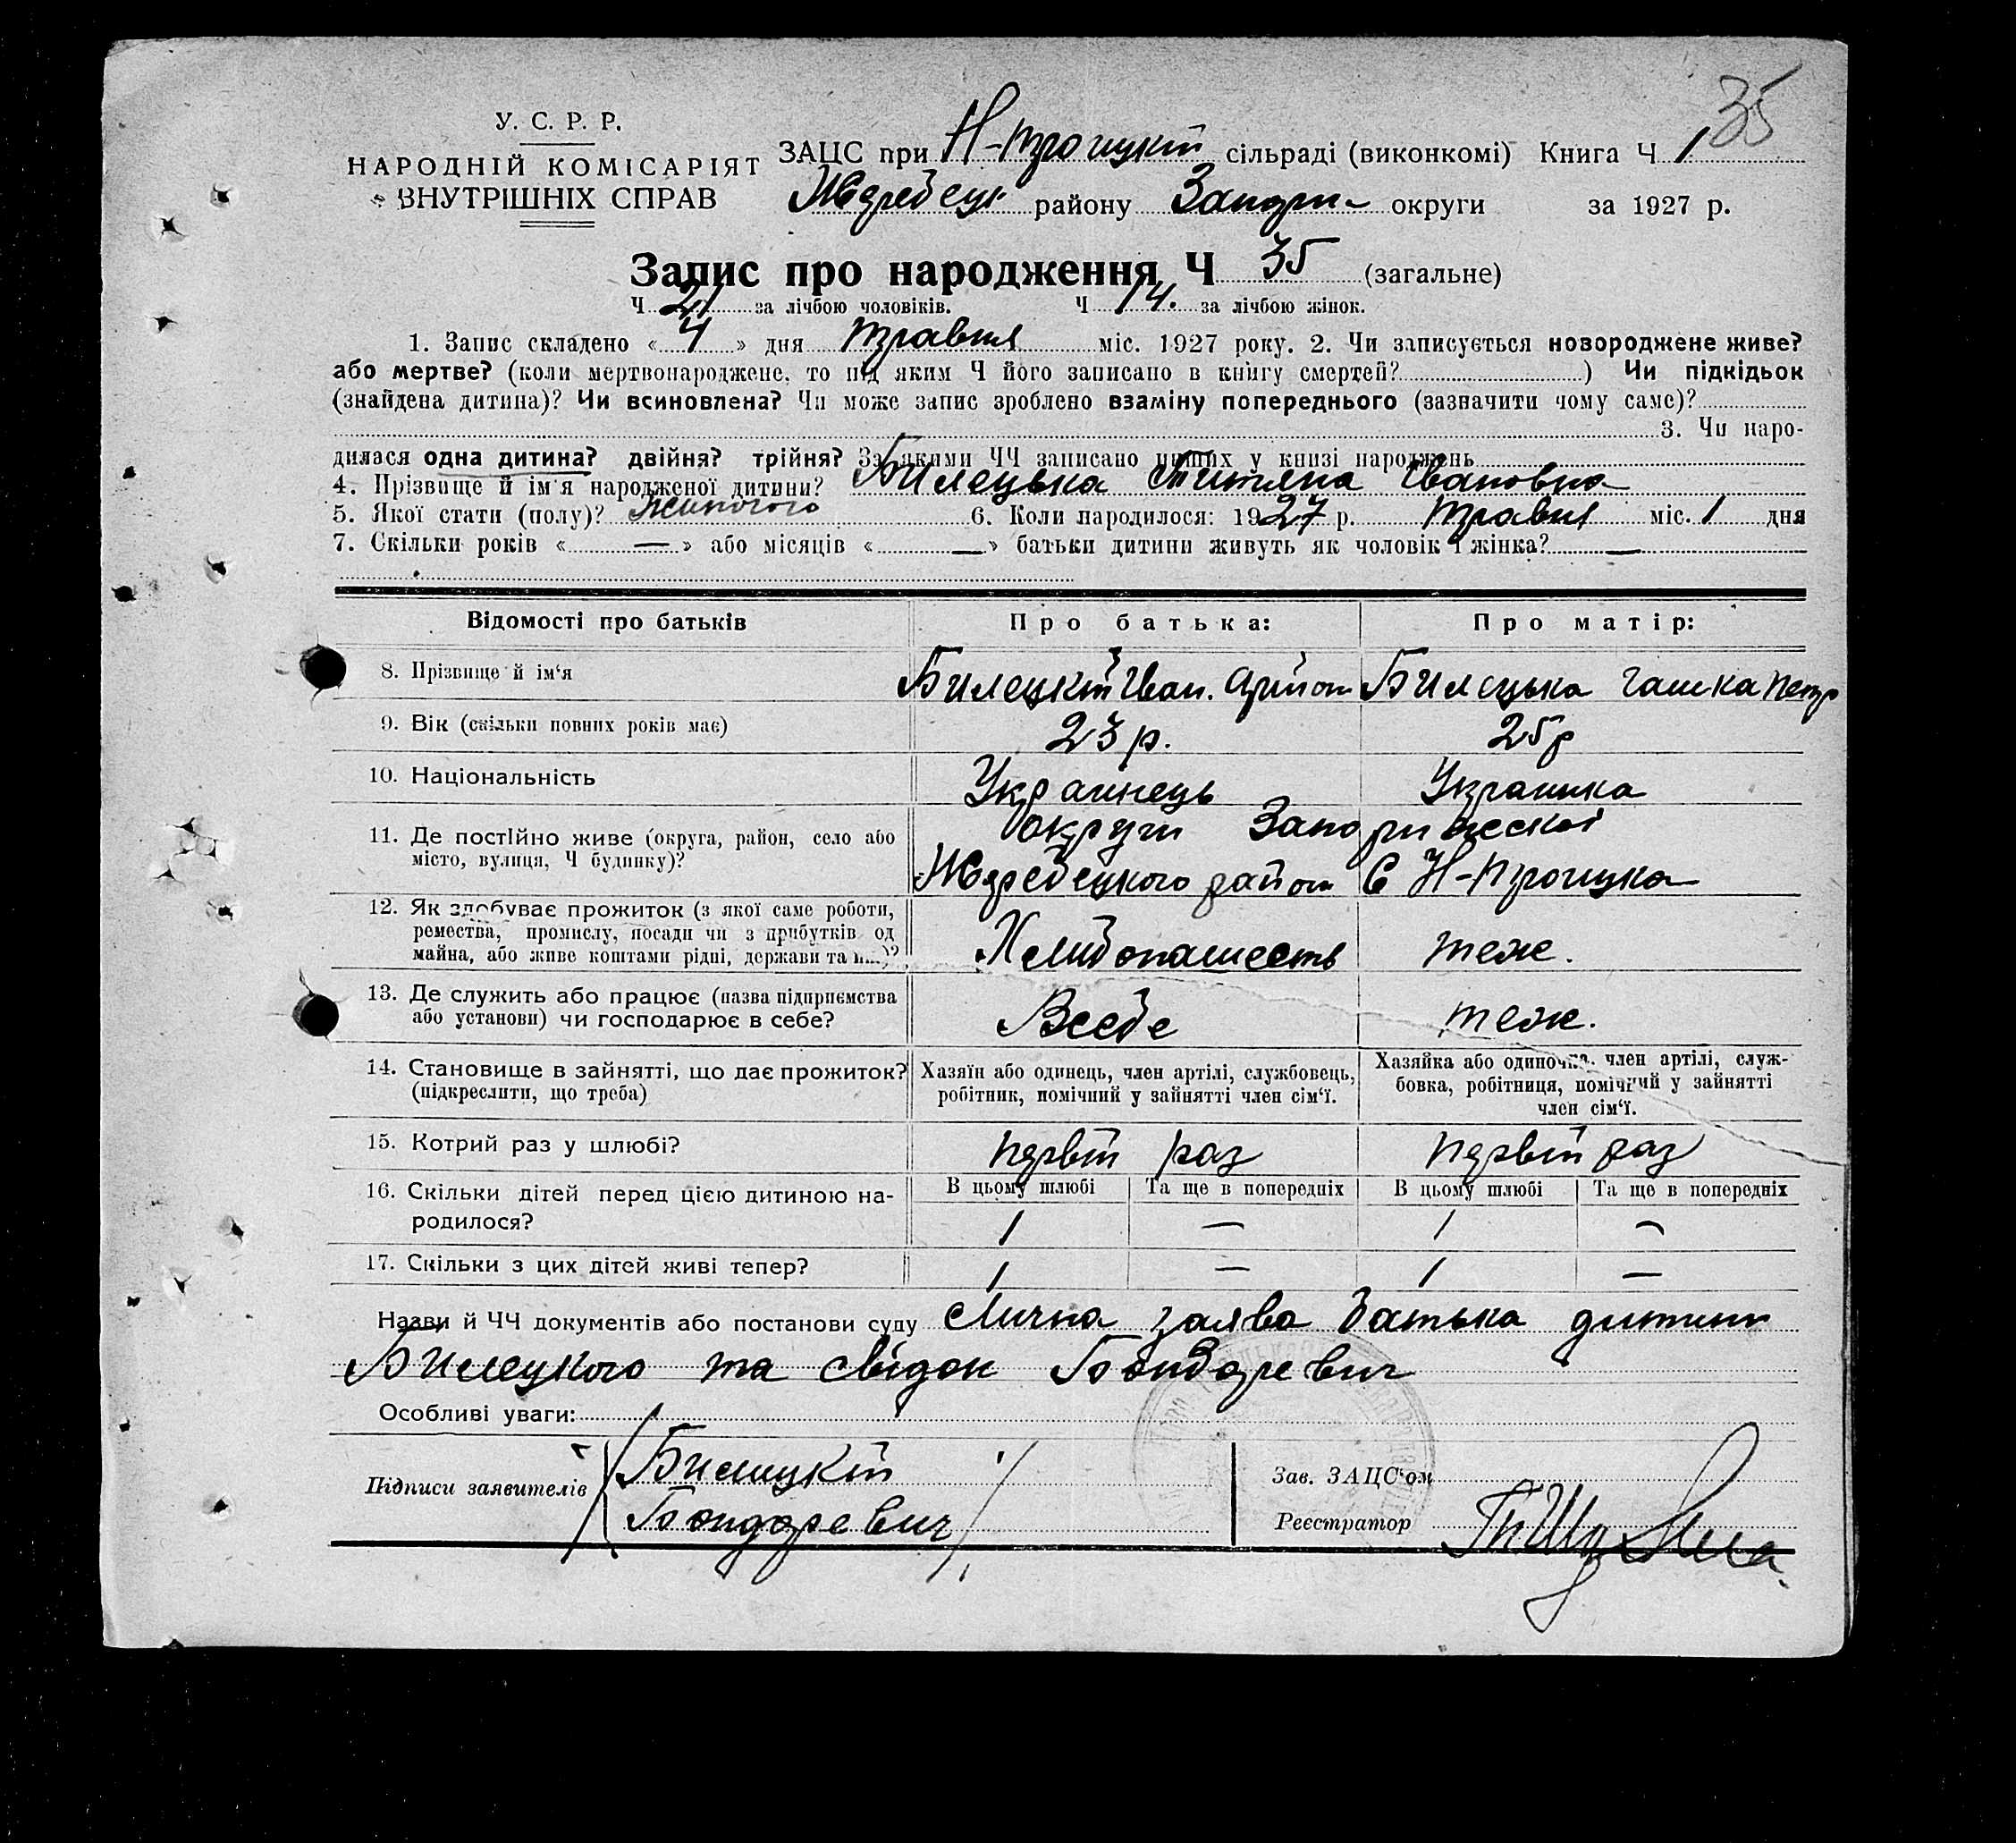 35
У. С. Р. Р.
НАРОДНІЙ КОМІСАРІЯТ
ВНУТРІШНІХ СПРАВ
ЗАЦС при Н-Троицкій сільраді (виконкомі) Книга Ч 1
Жеребецк району Запори округи за 1927 р.
Запис про народження Ч 35 (загальне)
Ч 21 за лічбою чоловіків. Ч 14. за лічбою жінок.
1. Запис складено « 4 » дня травня міс. 1927 року. 2. Чи записується новороджене живе?
або мертве? (коли мертвонароджене, то під яким Ч його записано в книгу смертей? ) Чи підкідьок
(знайдена дитина)? Чи всиновлена? Чи може запис зроблено взаміну попереднього (зазначити чому саме)?
3. Чи наро-
дилася одна дитина? двійня? трійня? За якими ЧЧ записано инших у книзі народжень
4. Прізвище й ім'я народженої дитини? Билецька Титяна Івановна
5. Якої стати (полу)? Жиночого 6. Коли народилося: 1927 р. травня міс. 1 дня
7. Скільки років « — » або місяців « — » батьки дитини живуть як чоловік і жінка? —
Відомості про батьків Про батька: Про матір:
8. Прізвище й ім'я Билецкій Іван. Билецька Гашка Петр
9. Вік (скільки повних років має) 23 р. 25 р
10. Національність Украинець Украинка
11. Де постійно живе (округа, район, село або округи Запорижской
місто, вулиця, Ч будинку)? Жеребецкого район С Н-Троицка
12. Як здобуває прожиток (з якої саме роботи,
ремества, промислу, посади чи з прибутків од Хлибопашесть теж.
майна, або живе коштами рідні, держави та ин.)?
13. Де служить або працює (назва підприємства
або установи) чи господарює в себе? Всебе теж.
14. Становище в зайнятті, що дає прожиток? Хазяїн або одинець, член артілі, службовець, Хазяйка або одиночка, член артілі, служ-
(підкреслити, що треба) робітник, помічний у зайнятті член сім'ї. бовка, робітниця, помічний у зайнятті
член сім'ї.
15. Котрий раз у шлюбі? первій раз первій раз
16. Скільки дітей перед цією дитиною на- В цьому шлюбі Та ще в попередніх В цьому шлюбі Та ще в попередніх
родилося? 1 — 1 —
17. Скільки з цих дітей живі тепер? 1 — 1 —
Назви й ЧЧ документів або постанови суду Лична заява батька дитини
Билецкого та свідок Бондаревич
Особливі уваги:
Підписи заявителів Билицкій Зав. ЗАЦС'ом
Бондаревич Реєстратор